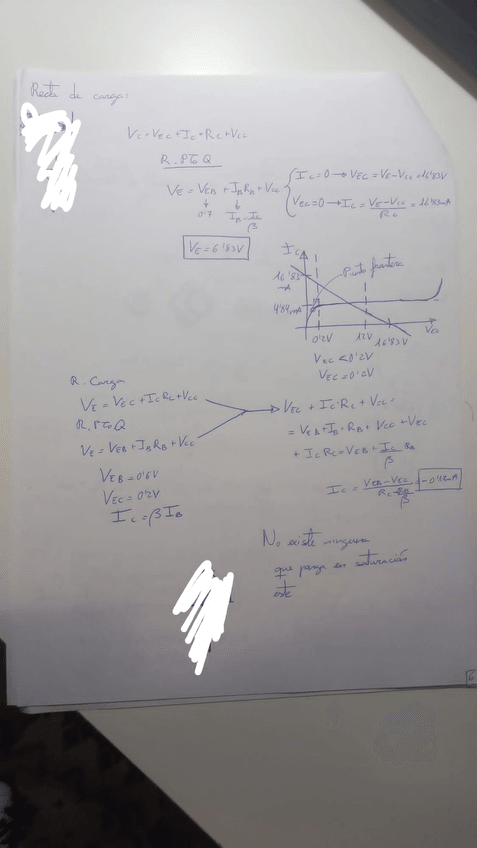 Recta de carga:
Vc=VEC+Ic·Rc+Vcc
R.PTO Q
VE=VEB+IBRB+Vcc
0'7 IB=Ic/β
Ic=0→VEC=VE-Vcc=16'83V
VEC=0→Ic=(VE-Vcc)/Rc=16'83mA
VE=6'83V
Ic
16'83 mA
Punto frontera
4'84mA
0'2V 12V 16'83V
VEC<0'2V
VEC=0'2V
R. Carga
VE=VEC+IcRc+Vcc
R.PTO Q
VE=VEB+IBRB+Vcc
VEB=0'6V
VEC=0'2V
Ic=βIB
VEC+Ic·Rc+Vcc=
=VEB+IB·RB+Vcc+VEC
+IcRc=VEB+Ic/β RB
Ic=(VEB-VEC)/(Rc-RB/β)=-0'12mA
No existe ninguna
que ponga en saturación
este
6